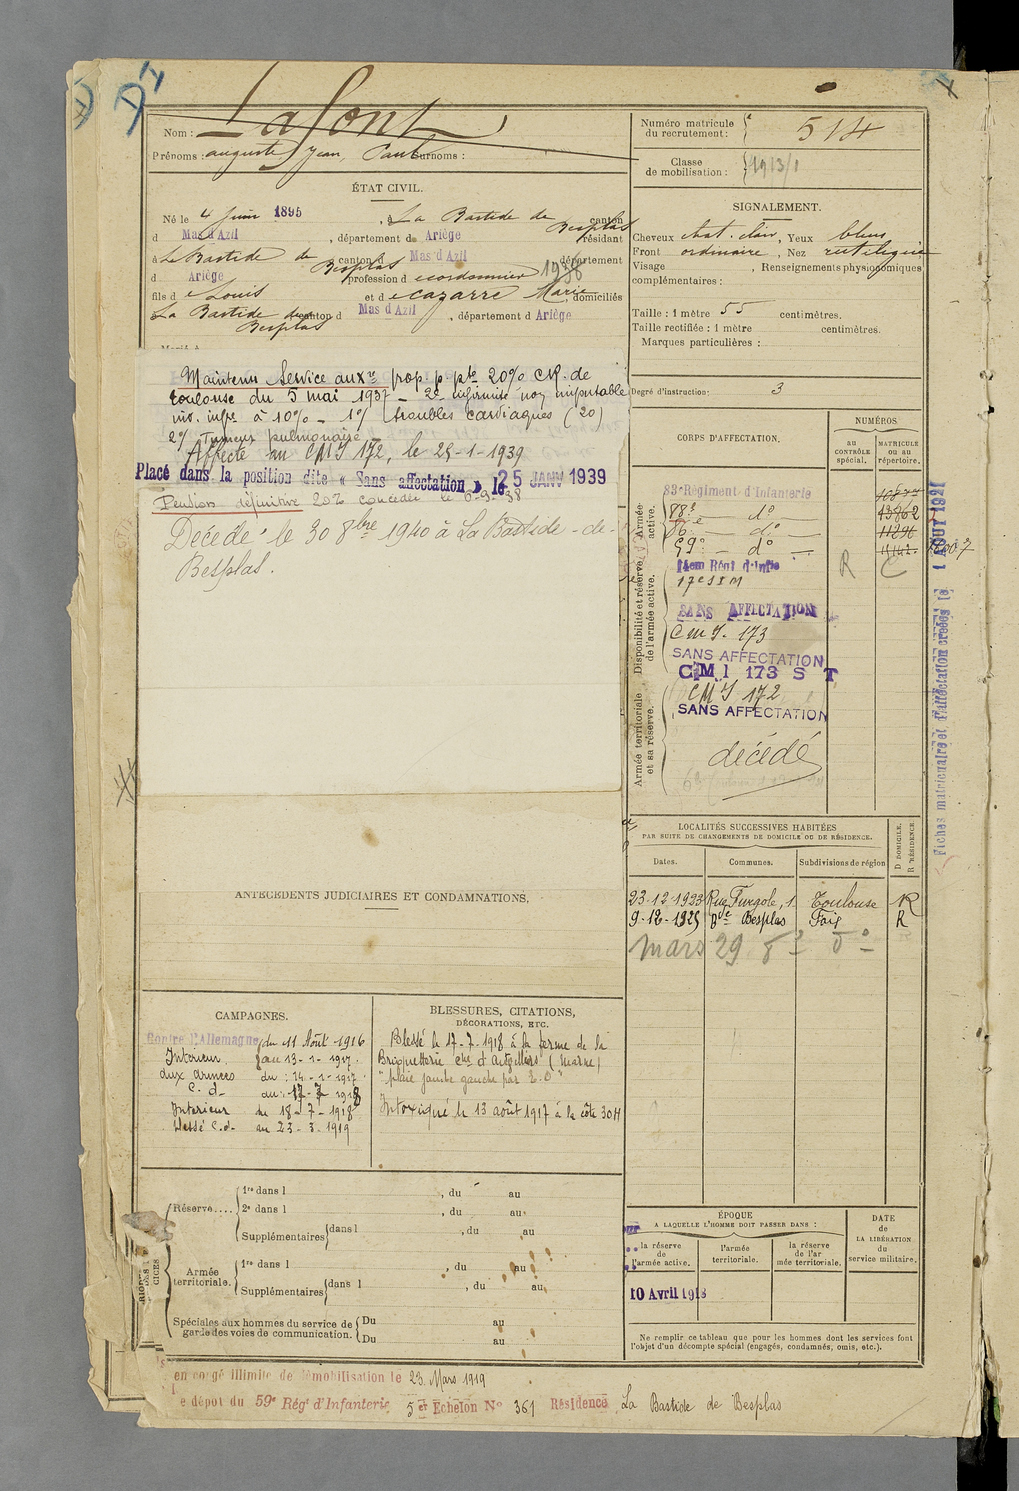 Nom : Lafont
Prénoms : auguste Jean, Paul Surnoms :
ÉTAT CIVIL.
Né le 4 Juin 1895, à La Bastide de Besplas canton
d Mas d'Azil, département de Ariège résidant
à La Bastide de Besplas canton d Mas d'Azil département
d Ariège profession d cordonnier 1936
fils de Louis et de Cazarré Marie, domiciliés
La Bastide de Besplas canton d Mas d'Azil, département d Ariège
Maintenu Service auxre prop. p. pte 20% C.R. de
Toulouse du 5 mai 1937 _ 2e infirmité non imputable
inv. infre à 10% _ 1°/ troubles cardiaques (20)
2°/ Tumeur pulmonaire _
Affecté au CMI 172, le 25-1-1939
Placé dans la position dite « Sans affectation » le 25 JANV 1939
Pension définitive 20% concédée le 6-9-38
Décédé le 30 8bre 1940 à La Bastide-de-
Besplas.
ANTÉCÉDENTS JUDICIAIRES ET CONDAMNATIONS,
CAMPAGNES.
Contre l'Allemagne du 11 Août 1916
Intérieur au 13-1-1917.
aux armées du : 14-1-1917
C. d. au : 17-7 1918
Intérieur du 18-7-1918
Blessé C.d. au 23-3-1919
BLESSURES, CITATIONS,
DÉCORATIONS, ETC.
Blessé le 17-7-1918 à la ferme de la
Briquetterie Cne d (Marne)
"plaie jambe gauche par E.O"
Intoxiqué le 13 août 1917 à la côte 304
Réserve....
1re dans l , du au
2e dans l , du au
Supplémentaires dans l , du au
Armée territoriale.
1re dans l , du au
Supplémentaires dans l , du au
Spéciales aux hommes du service de garde des voies de communication.
Du au
Du au
en congé illimité de démobilisation le 23 Mars 1919
le dépôt du 59e Régt d'Infanterie 5e Echelon No 361 Résidence La Bastide de Besplas
Numéro matricule du recrutement : 514
Classe de mobilisation : 1913/1
SIGNALEMENT.
Cheveux chat. clair, Yeux bleus
Front ordinaire, Nez rectiligne
Visage , Renseignements physionomiques
complémentaires :
Taille : 1 mètre 55 centimètres.
Taille rectifiée : 1 mètre centimètres.
Marques particulières :
Degré d'instruction : 3
CORPS D'AFFECTATION.
NUMÉROS
au CONTRÔLE spécial.
MATRICULE ou au RÉPERTOIRE.
Armée active.
83e Régiment d'Infanterie
88e _ do
do
59e _ do
13862
11296
Disponibilité et réserve de l'armée active.
14em Régt d'Infie
17e S I M
R C
SANS AFFECTATION
C M I. 173
SANS AFFECTATION
C M I 173 S T
Armée territoriale et sa réserve.
CMI 172
SANS AFFECTATION
décédé
Fiches matriculaire et d'affectation créées le 1 AOUT 1921
LOCALITÉS SUCCESSIVES HABITÉES
PAR SUITE DE CHANGEMENTS DE DOMICILE OU DE RÉSIDENCE.
Dates. Communes. Subdivisions de région D DOMICILE. R RÉSIDENCE
23-12-1923 Rue Furgole, 1 Toulouse R
9-12-1925 Bde Besplas Foix R
mars 29 do do
ÉPOQUE
A LAQUELLE L'HOMME DOIT PASSER DANS :
la réserve de l'armée active.
l'armée territoriale.
la réserve de l'armée territoriale.
DATE de LA LIBÉRATION du service militaire.
10 Avril 1918
Ne remplir ce tableau que pour les hommes dont les services font
l'objet d'un décompte spécial (engagés, condamnés, omis, etc.).